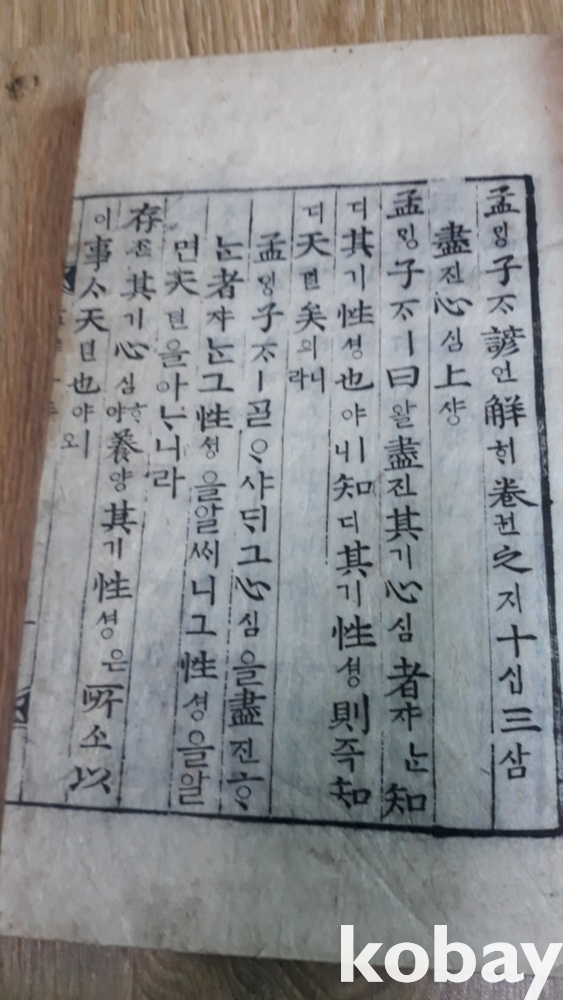 孟ᄆᆡᆼ子ᄌᆞ諺언解ᄒᆡ卷권之지十십三삼
盡진心심上샹
孟ᄆᆡᆼ子ᄌᆞㅣ曰왈盡진其기心심者쟈ᄂᆞᆫ知
디其기性셩也야ㅣ니知디其기性셩則즉知
디天텬矣의니라
孟ᄆᆡᆼ子ᄌᆞㅣᄀᆞᆯᄋᆞ샤ᄃᆡ그心심을盡진ᄒᆞ
ᄂᆞᆫ者쟈ᄂᆞᆫ그性셩을알ᄡᅵ니그性셩을알
면天텬을아ᄂᆞ니라
存존其기心심ᄒᆞ야養양其기性셩은所소以
이事ᄉᆞ天텬也야ㅣ오
kobay